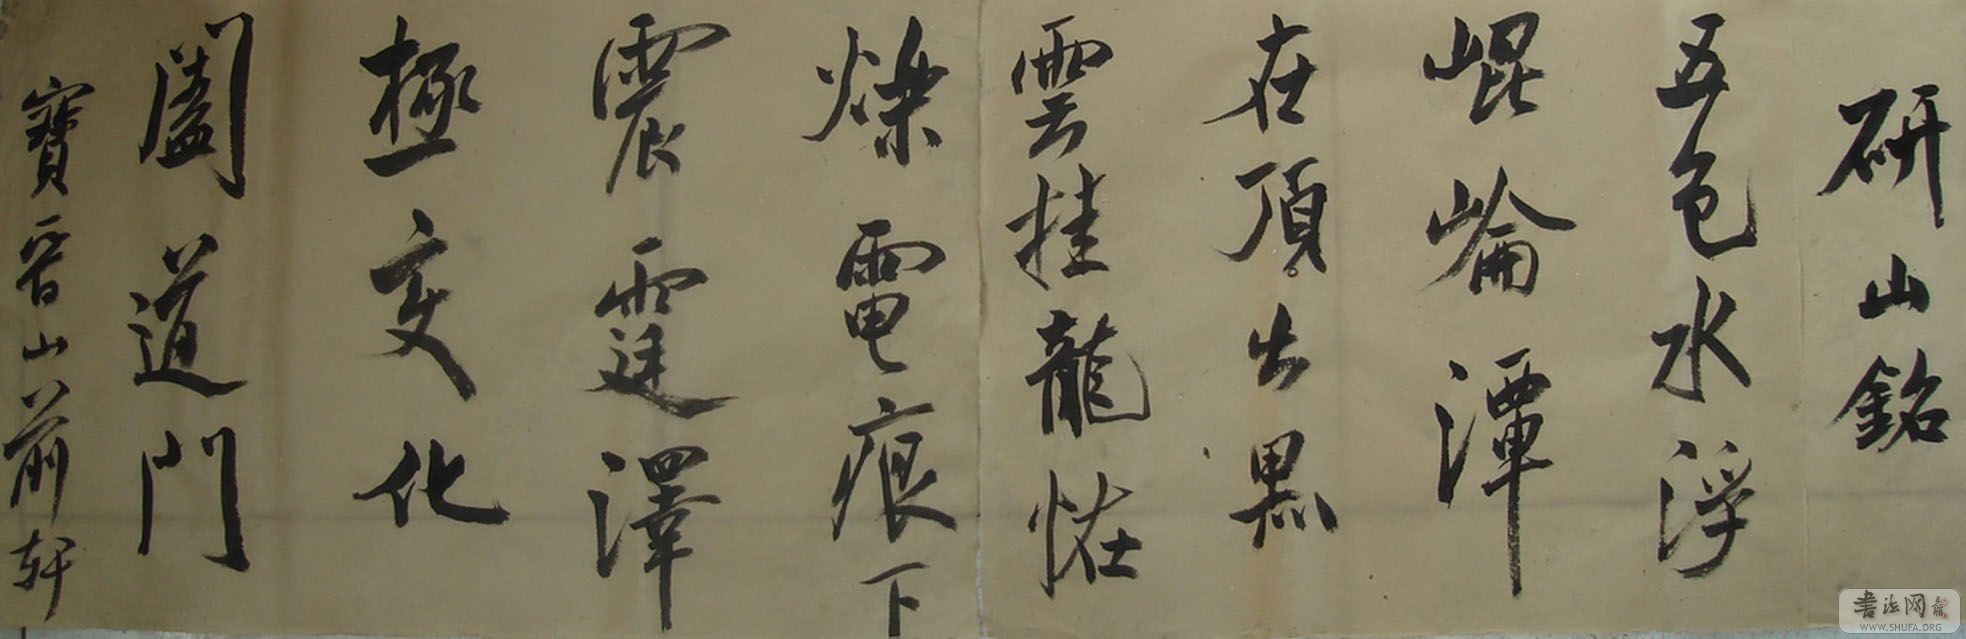 研山銘
五色水浮
崐崘潭
在頂出黑
雲挂龍怪
爍電痕下
震霆澤
極変化
闔道門
寶晉山前軒
書法网
WWW.SHUFA.ORG